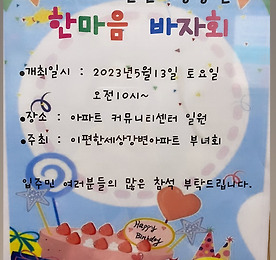 한마음 바자회
•개최일시 : 2023년5월13일 토요일
오전10시~
•장소 : 아파트 커뮤니티센터 일원
•주최 : 이편한세상강변아파트 부녀회
입주민 여러분들의 많은 참석 부탁드립니다.
Happy
Birthday